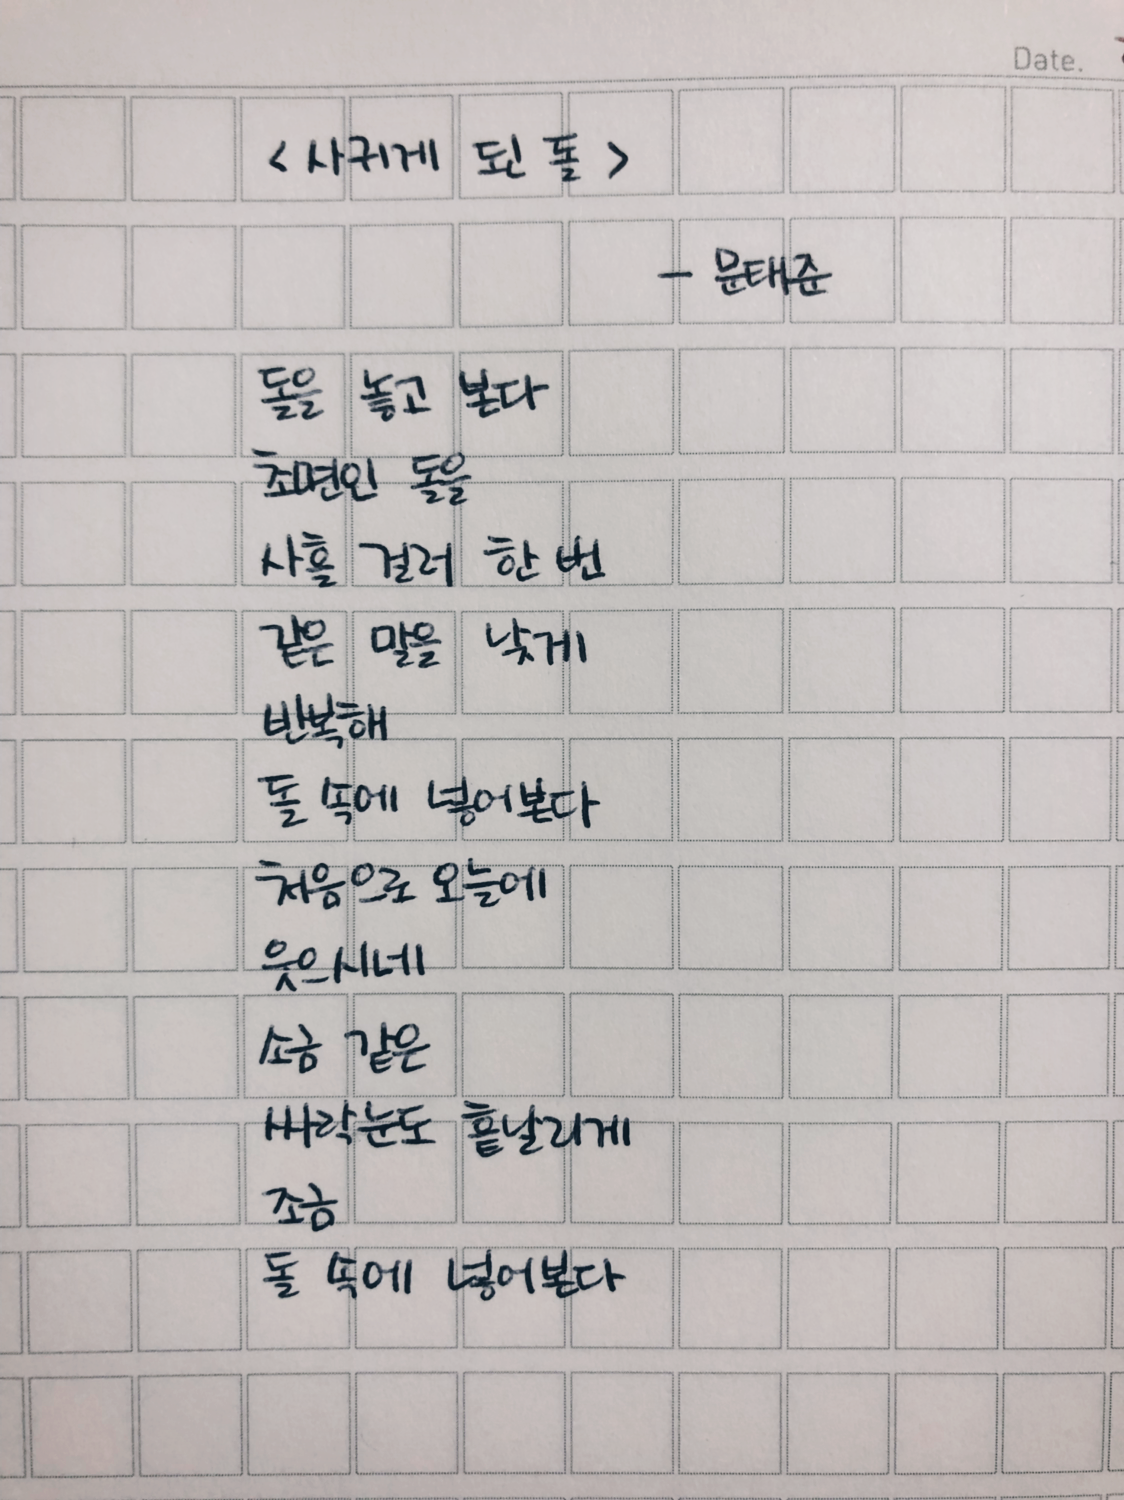 Date.
< 사귀게 된 돌 >
- 문태준
돌을 놓고 본다
초면인 돌을
사흘 걸러 한 번
같은 말을 낮게
반복해
돌 속에 넣어본다
처음으로 오늘에
웃으시네
소금 같은
싸락눈도 흩날리게
조금
돌 속에 넣어본다